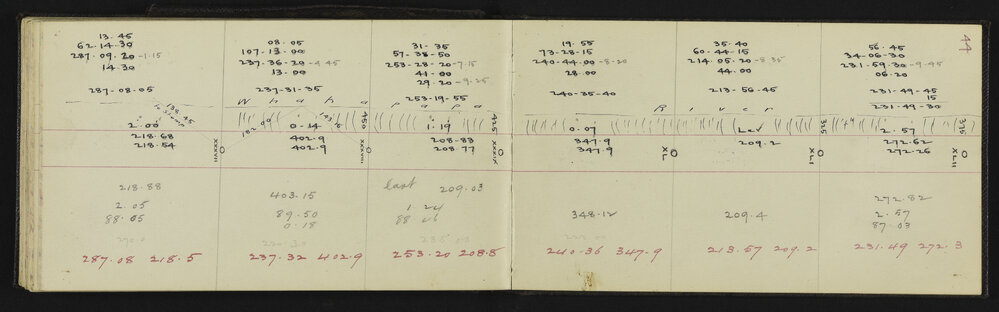 13.45
62.14.30
287.09.20-1.15
14.30
287-08-05
2.00
218.68
218.54
XXXVII
218.88
2.05
88.05
287.08 218.5
08.05
107.13.00
237-36-20-4.45
13.00
237-31-35
Whaka
0.14
402.9
402.9
450
XXXVIII
403.15
89.50
0.18
237.32 402.9
31-35
57-38-50
253-28-20-7.15
41-00
29.20-9.25
253-19-55
papa
1.19
208-83
208.77
425
XXXIX
last 209.03
253.20 208.8
44
19.55
73-28-15
240-44-00-8-20
28.00
240-35-40
River
0.07
347.9
347.9
XL
348.12
240.36 347.9
35-40
60-44-15
214.05.20-8.35
44.00
213-56-45
Lev
209.2
365
XLI
209.4
213.57 209.2
56.45
34-06-30
231-59.30-9.45
06.20
231-49-45
15
231-49-30
2.57
272-62
272-26
375
XLII
272.82
2.57
87.03
231.49 272.3